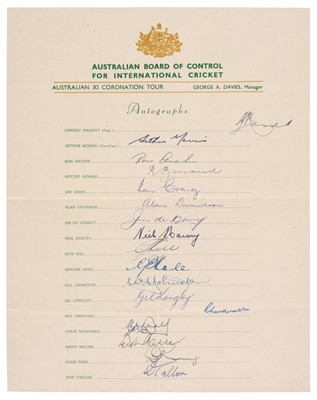 AUSTRALIAN BOARD OF CONTROL
FOR INTERNATIONAL CRICKET
AUSTRALIAN XI CORONATION TOUR GEORGE A. DAVIES, Manager
Autographs
LINDSAY HASSETT (Capt.)
ARTHUR MORRIS (Vice-Capt.) Arthur Morris
RON ARCHER Ron Archer
RICHIE BENAUD R Benaud
IAN CRAIG Ian Craig
ALAN DAVIDSON Alan Davidson
JIM DE COURCY Jim de Courcy
NEIL HARVEY Neil Harvey
JACK HILL J Hill
GRAEME HOLE G Hole
BILL JOHNSTON W Johnston
GIL LANGLEY Gil Langley
RAY LINDWALL
COLIN McDONALD
KEITH MILLER
DOUG RING D Ring
DON TALLON D Tallon